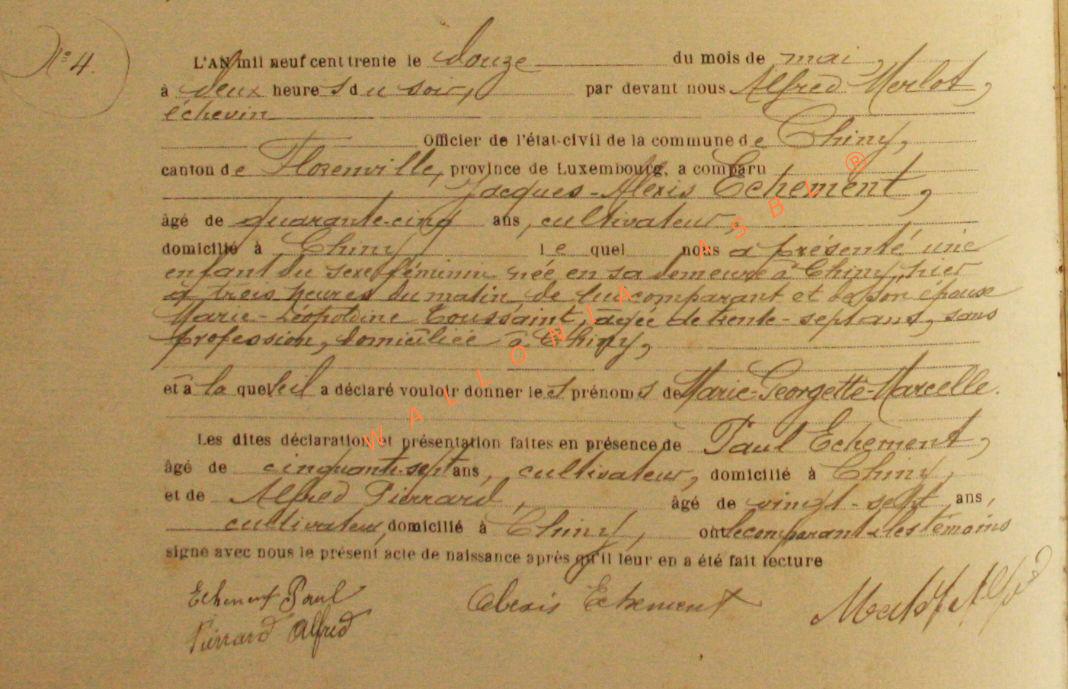 N° 4.
L'AN mil neuf cent trente le douze du mois de mai,
à deux heures du soir, par devant nous Alfred Merlot,
échevin
Officier de l'état-civil de la commune de Chiny,
canton de Florenville, province de Luxembourg, a comparu
Jacques-Alexis Echement,
âgé de quarante-cinq ans, cultivateur,
domicilié à Chiny le quel nous a présenté une
enfant du sexe féminin née en sa demeure à Chiny, hier
à trois heures du matin de lui comparant et de son épouse
Marie-Léopoldine Toussaint, agée de trente-sept ans, sans
profession, domiciliée à Chiny,
et à la quelle il a déclaré vouloir donner les prénoms de Marie-Georgette-Marcelle.
Les dites déclaration et présentation faites en présence de Paul Echement,
âgé de cinquante-sept ans, cultivateur, domicilié à Chiny,
et de Alfred Pierrard, âgé de vingt-sept ans,
cultivateur, domicilié à Chiny, ont le comparant et les témoins
signé avec nous le présent acte de naissance après qu'il leur en a été fait lecture
Echement Paul Alexis Echement Merlot Alf
Pierrard Alfred
WALLONIA ASBL ®